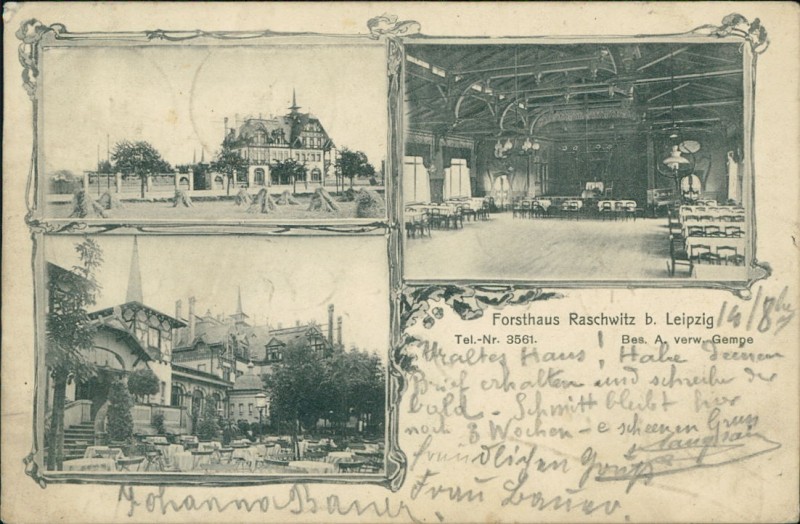 Forsthaus Raschwitz b. Leipzig
Tel.-Nr. 3561. Bes. A. verw. Gempe
14/8
Uraltes Haus! Habe Deinen
Brief erhalten und schreibe dir
bald. Schmitt bleibt hier
noch 3 Wochen scheenen Gruss
freundlichen Gruss
Frau Bauer.
Johanna Bauer.